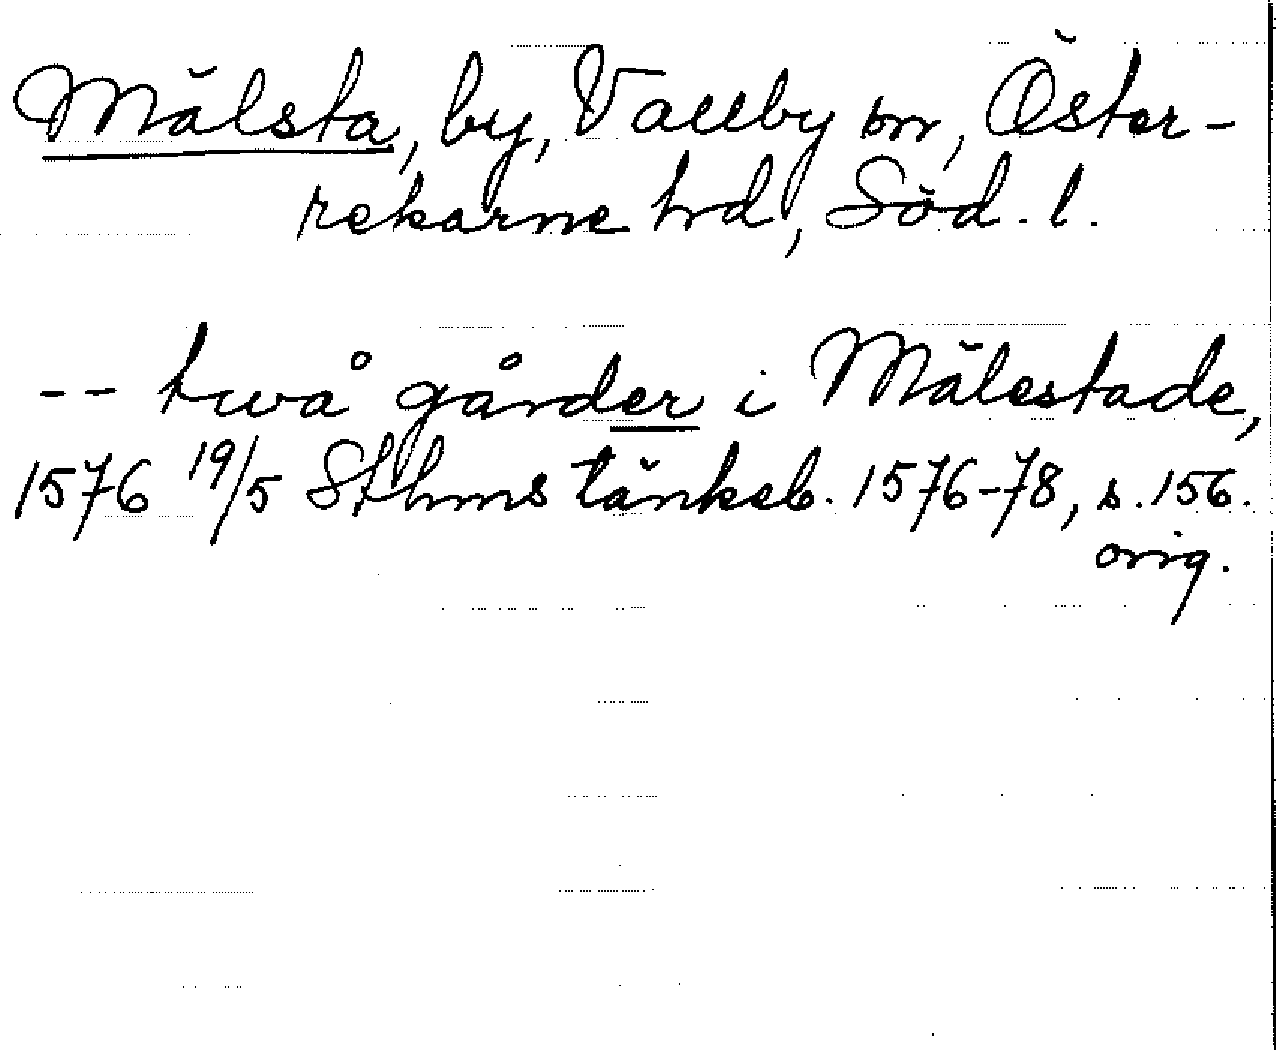 Mälsta, by, Vallby sn, Öster-
rekarne hd, Söd. l.
-- twå gårder i Mälestade,
1576 19/5 Sthms tänkeb. 1576-78, s. 156.
orig.